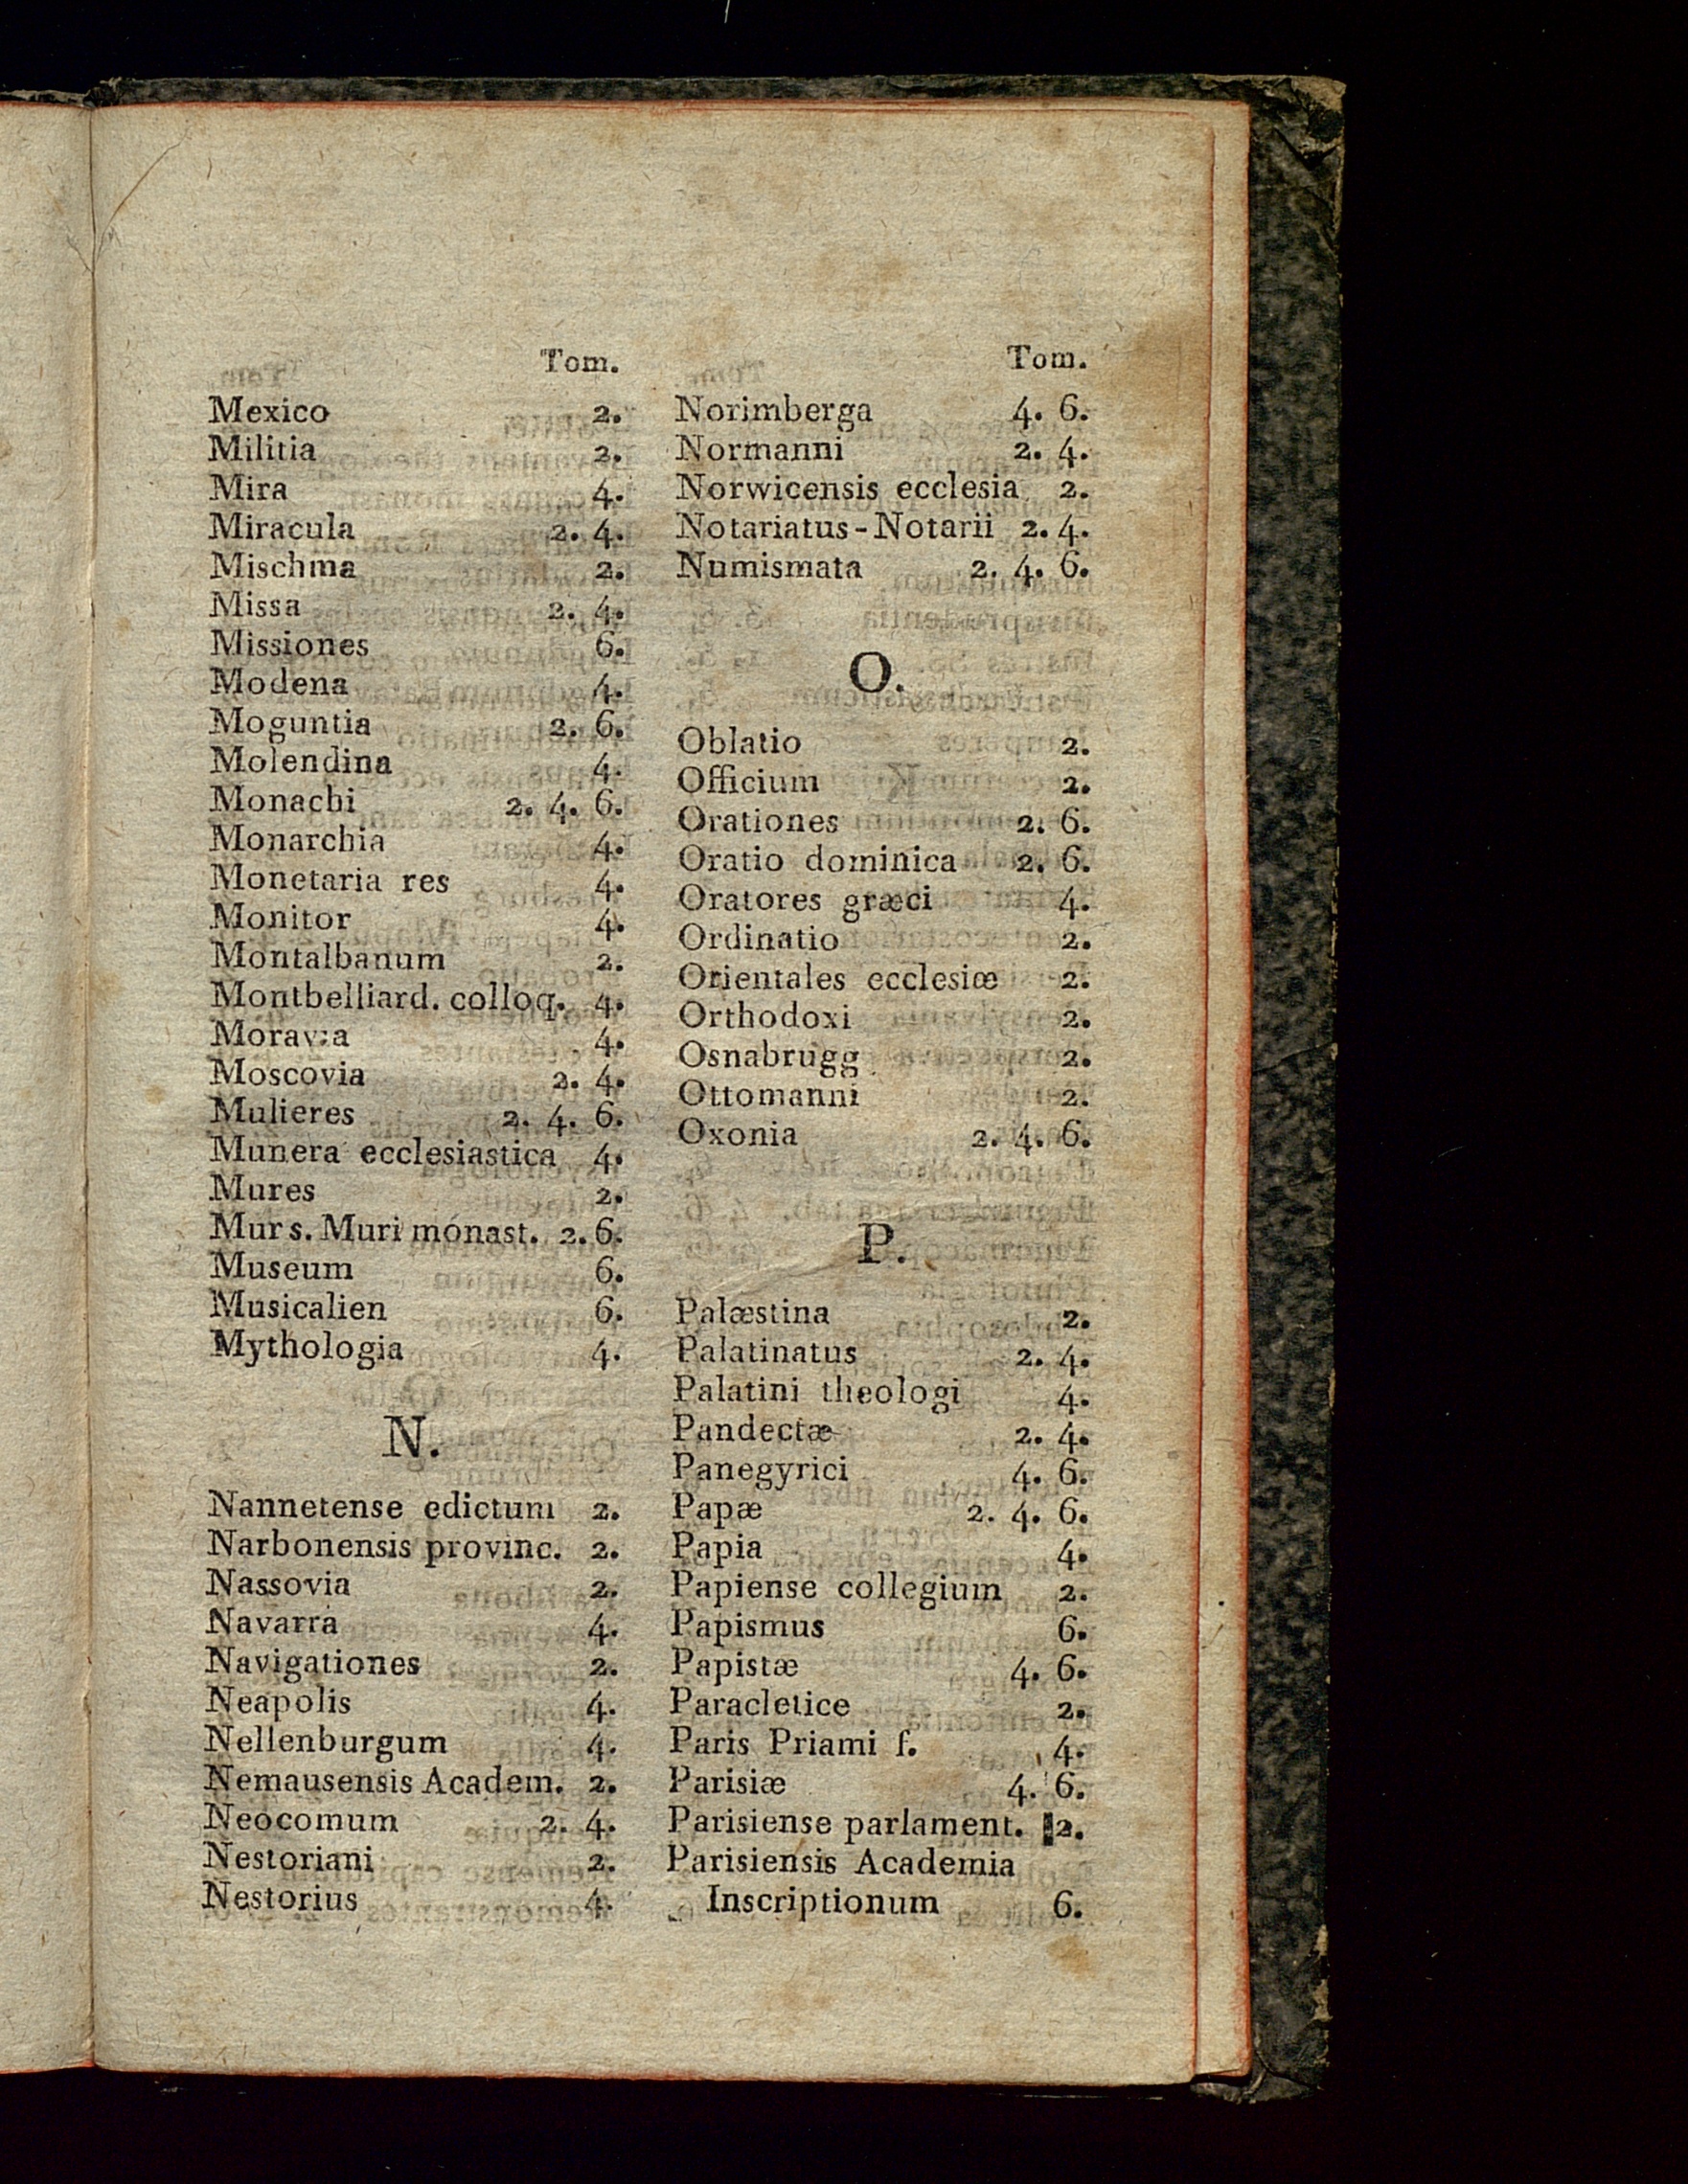 Tom.
Mexico 2.
Militia 2.
Mira 4.
Miracula 2. 4.
Mischma 2.
Missa 2. 4.
Missiones 6.
Modena 4.
Moguntia 2. 6.
Molendina 4.
Monachi 2. 4. 6.
Monarchia 4.
Monetaria res 4.
Monitor 4.
Montalbanum 2.
Montbelliard. colloq. 4.
Moravia 4.
Moscovia 2. 4.
Mulieres 2. 4. 6.
Munera ecclesiastica 4.
Mures 2.
Mur s. Muri monast. 2. 6.
Museum 6.
Musicalien 6.
Mythologia 4.
N.
Nannetense edictum 2.
Narbonensis provinc. 2.
Nassovia 2.
Navarra 4.
Navigationes 2.
Neapolis 4.
Nellenburgum 4.
Nemausensis Academ. 2.
Neocomum 2. 4.
Nestoriani 2.
Nestorius 4.
Tom.
Norimberga 4. 6.
Normanni 2. 4.
Norwicensis ecclesia 2.
Notariatus-Notarii 2. 4.
Numismata 2. 4. 6.
O.
Oblatio 2.
Officium 2.
Orationes 2. 6.
Oratio dominica 2. 6.
Oratores græci 4.
Ordinatio 2.
Orientales ecclesiæ 2.
Orthodoxi 2.
Osnabrugg 2.
Ottomanni 2.
Oxonia 2. 4. 6.
P.
Palæstina 2.
Palatinatus 2. 4.
Palatini theologi 4.
Pandectæ 2. 4.
Panegyrici 4. 6.
Papæ 2. 4. 6.
Papia 4.
Papiense collegium 2.
Papismus 6.
Papistæ 4. 6.
Paracletice 2.
Paris Priami f. 4.
Parisiæ 4. 6.
Parisiense parlament. 2.
Parisiensis Academia
Inscriptionum 6.